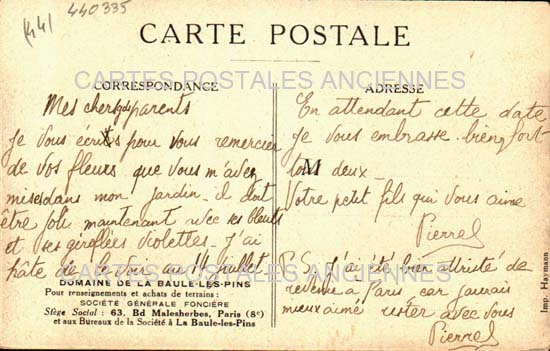 441
440335
CARTE POSTALE
CARTES POSTALES ANCIENNES
CORRESPONDANCE
Mes chers gds parents
Je vous écris pour vous remercier
de vos fleurs que vous m'avez
mises dans mon jardin. il doit
être joli maintenant avec ses bleuets
et ses giroflées violettes. j'ai
hâte de le voir au 14 juillet
DOMAINE DE LA BAULE-LES-PINS
Pour renseignements et achats de terrains :
SOCIÉTÉ GÉNÉRALE FONCIÈRE
Siège Social : 63, Bd Malesherbes, Paris (8e)
et aux Bureaux de la Société à La Baule-les-Pins
ADRESSE
En attendant cette date
je vous embrasse bien fort
tous deux_
Votre petit fils qui vous aime
Pierre
P.S. j'ai été bien attristé de
revenir a Paris car j'aurais
mieux aimé rester avec vous
Pierre
Imp. Haymann